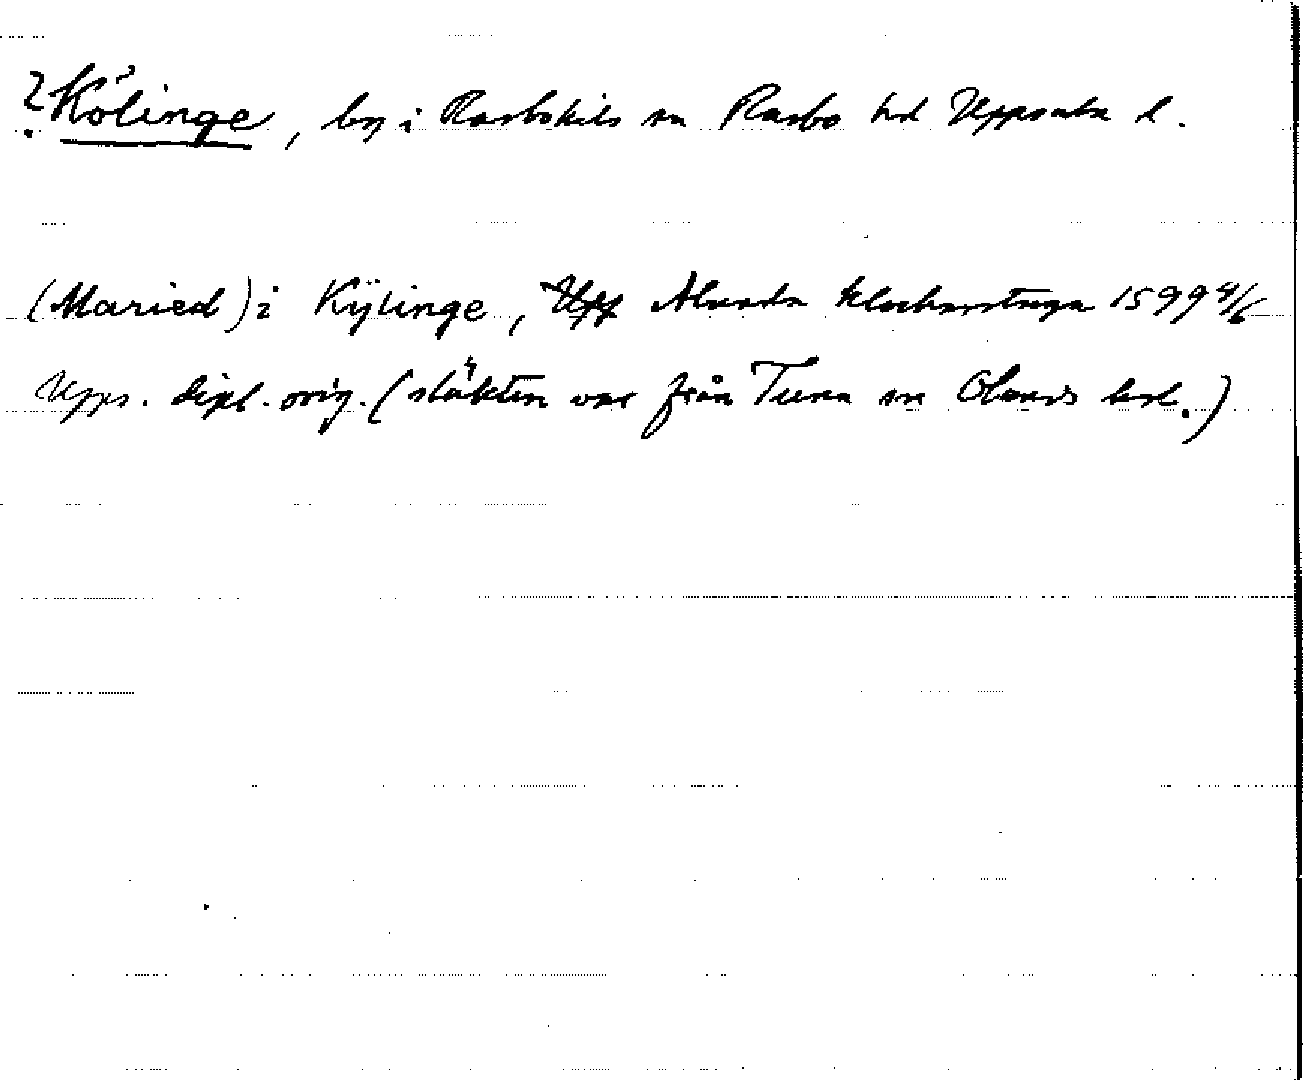 ? Kölinge, by i Rasbokils sn Rasbo hd Uppsala l.
(Maried) i Kÿlinge, Alunda klockarstuga 1599 4/6
Upps. dipl. orig. (släkten var från Tuna sn Olands hd.)